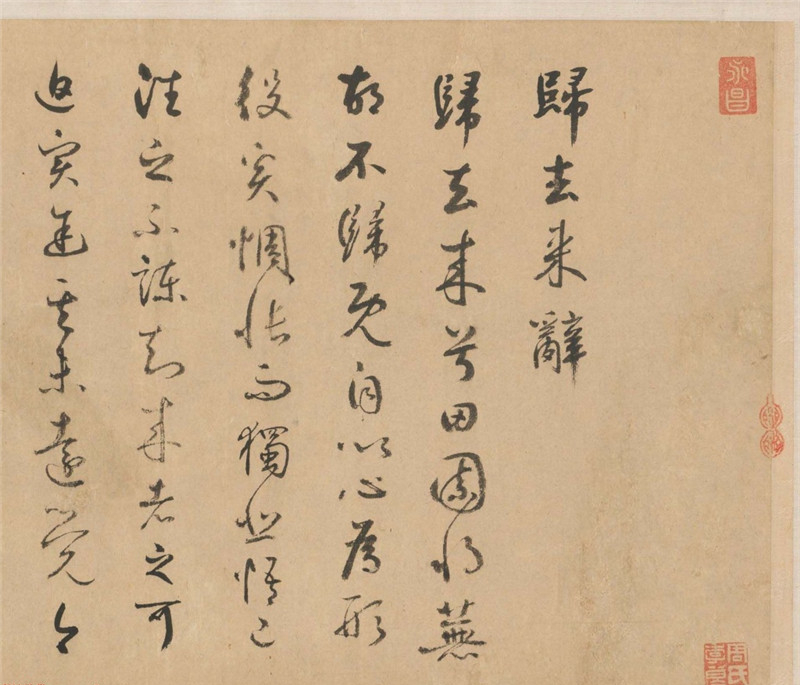 永昌
歸去来辭
歸去来兮田園将蕪
胡不歸既自以心為形
役奚惆悵而獨悲悟已
往之不諫知来者之可
追实其未遠覺今
周氏